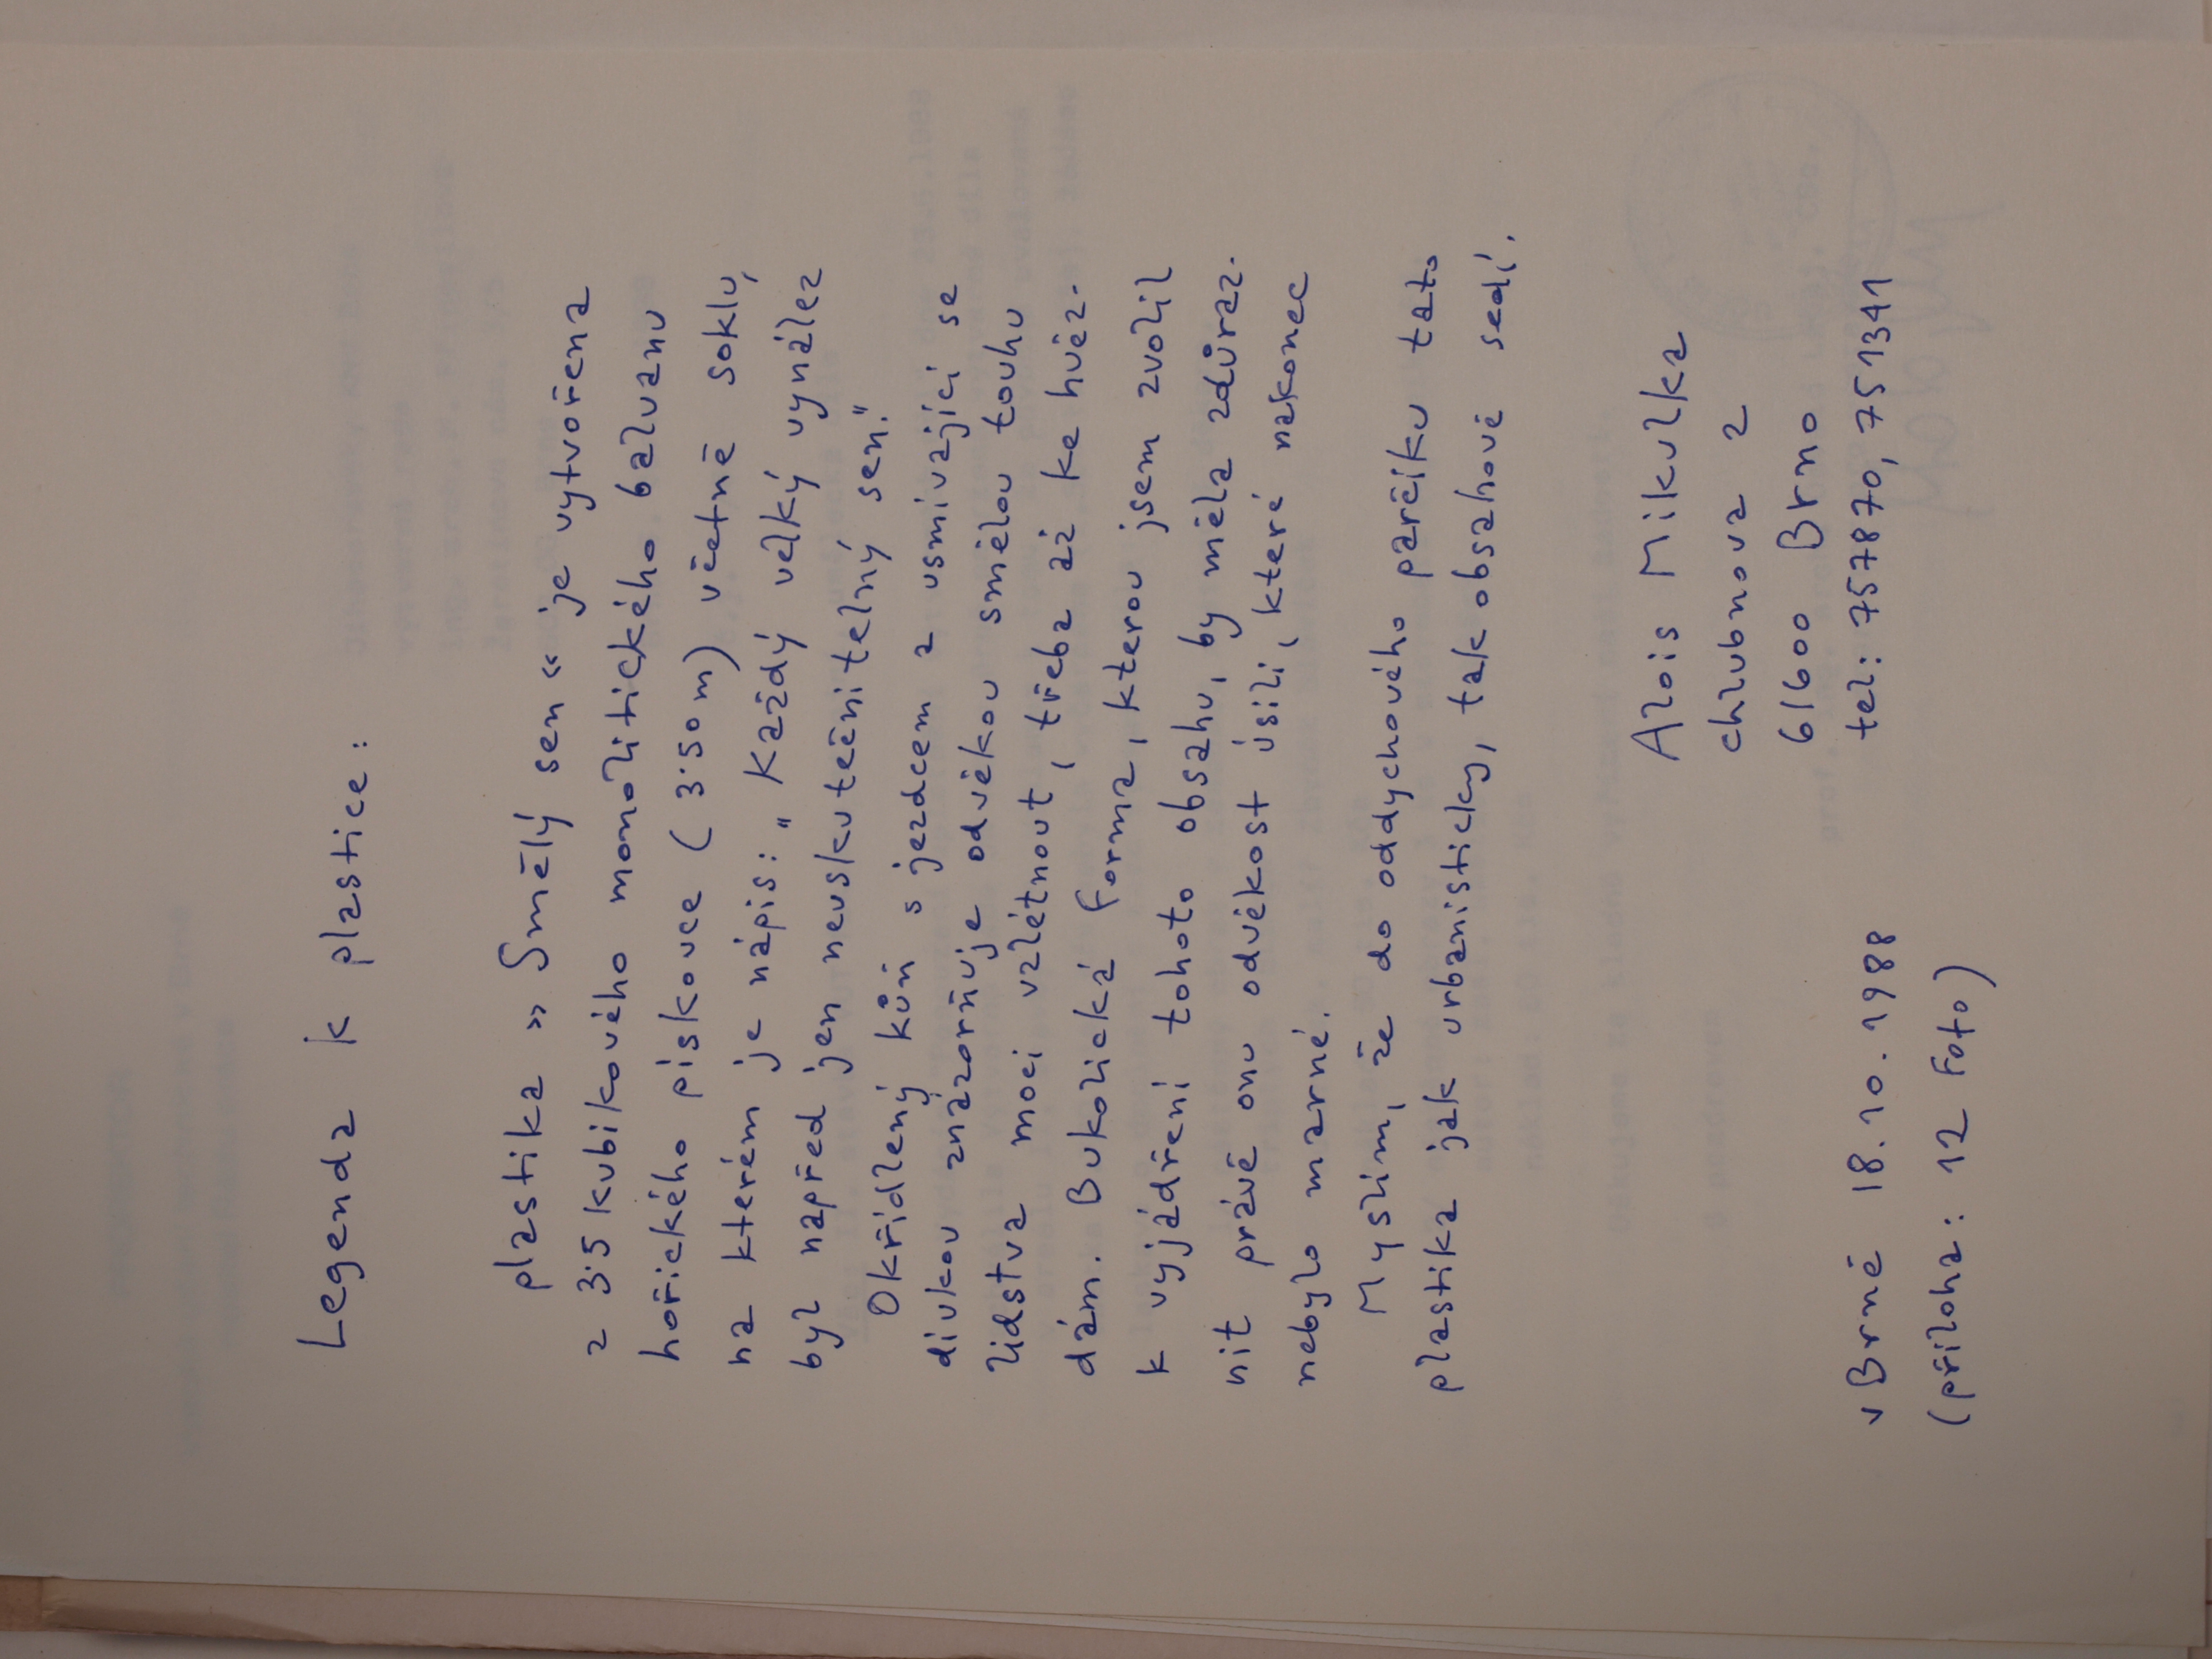 Legenda k plastice:
plastika » Smělý sen « je vytvořena
z 3·5 kubikového monolitického balvanu
hořického pískovce ( 3·50 m) včetně soklu,
na kterém je nápis: " Každý velký vynález
byl napřed jen neuskutečnitelný sen."
Okřídlený kůň s jezdcem a usmívající se
dívkou znázorňuje odvěkou smělou touhu
lidstva moci vzlétnout, třeba až ke hvěz-
dám. Bukolická forma, kterou jsem zvolil
k vyjádření tohoto obsahu, by měla zdůraz-
nit právě onu odvěkost úsilí, které nakonec
nebylo marné.
Myslím, že do oddychového parčíku tato
plastika jak urbanisticky, tak obsahově sedí.
Alois Mikulka
chlubnova 2
61600 Brno
tel: 757870, 751341
v Brně 18.10.1988
(příloha: 12 Foto)